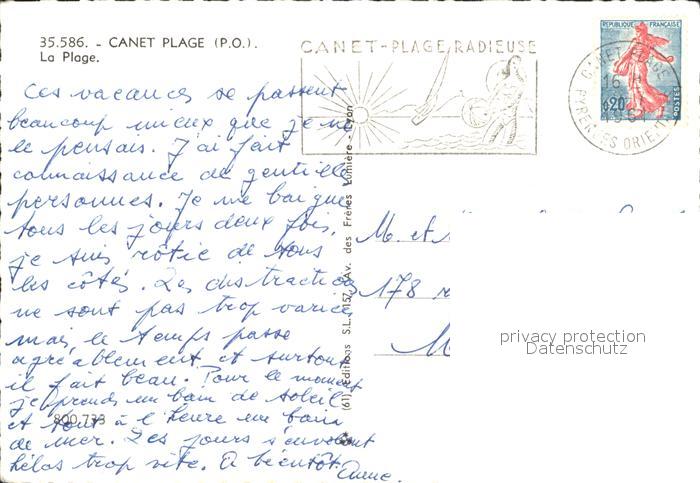 35.586. - CANET PLAGE (P.O.).
La Plage.
CANET-PLAGE RADIEUSE
REPUBLIQUE FRANÇAISE
0,20
POSTES
CANET PLAGE
16 H
PYRENEES ORIENT
Ces vacances se passent
beaucoup mieux que je ne
le pensais. J'ai fait
connaissance de gentilles
personnes. Je me baigne
tous les jours deux fois,
je suis rôtie de tous
les côtés. Les distractions
ne sont pas trop variées
mais le temps passe
agréablement et surtout
il fait beau. Pour le moment
je prends un bain de soleil
et tout à l'heure un bain
de mer. Les jours s'envolent
hélas trop vite. A bientôt
Anne.
800 733
(61) Editions S.L., 157, Av. des Frères Lumière - Lyon
M. et
178 r
M
privacy protection
Datenschutz